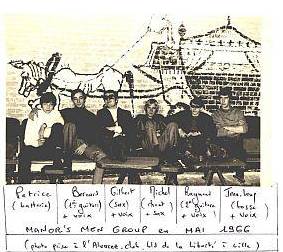 Patrice Bernard Gilbert Michel Raymond Jean-Loup
(batterie) (1e guitare) (Sax) (chant) (2e guitare) (basse
+ voix + voix + sax + voix) + voix
MANOR'S MEN GROUP en MAI 1966
(photo prise à l'club, Bd de la Liberté à Lille)